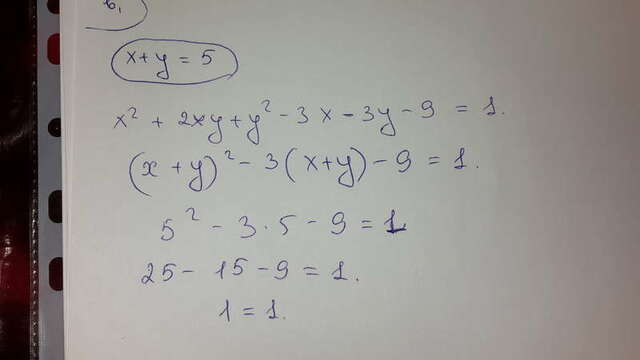 б,
x+y = 5
x² + 2xy + y² - 3x - 3y - 9 = 1.
(x + y)² - 3(x+y) - 9 = 1.
5² - 3·5 - 9 = 1
25 - 15 - 9 = 1.
1 = 1.